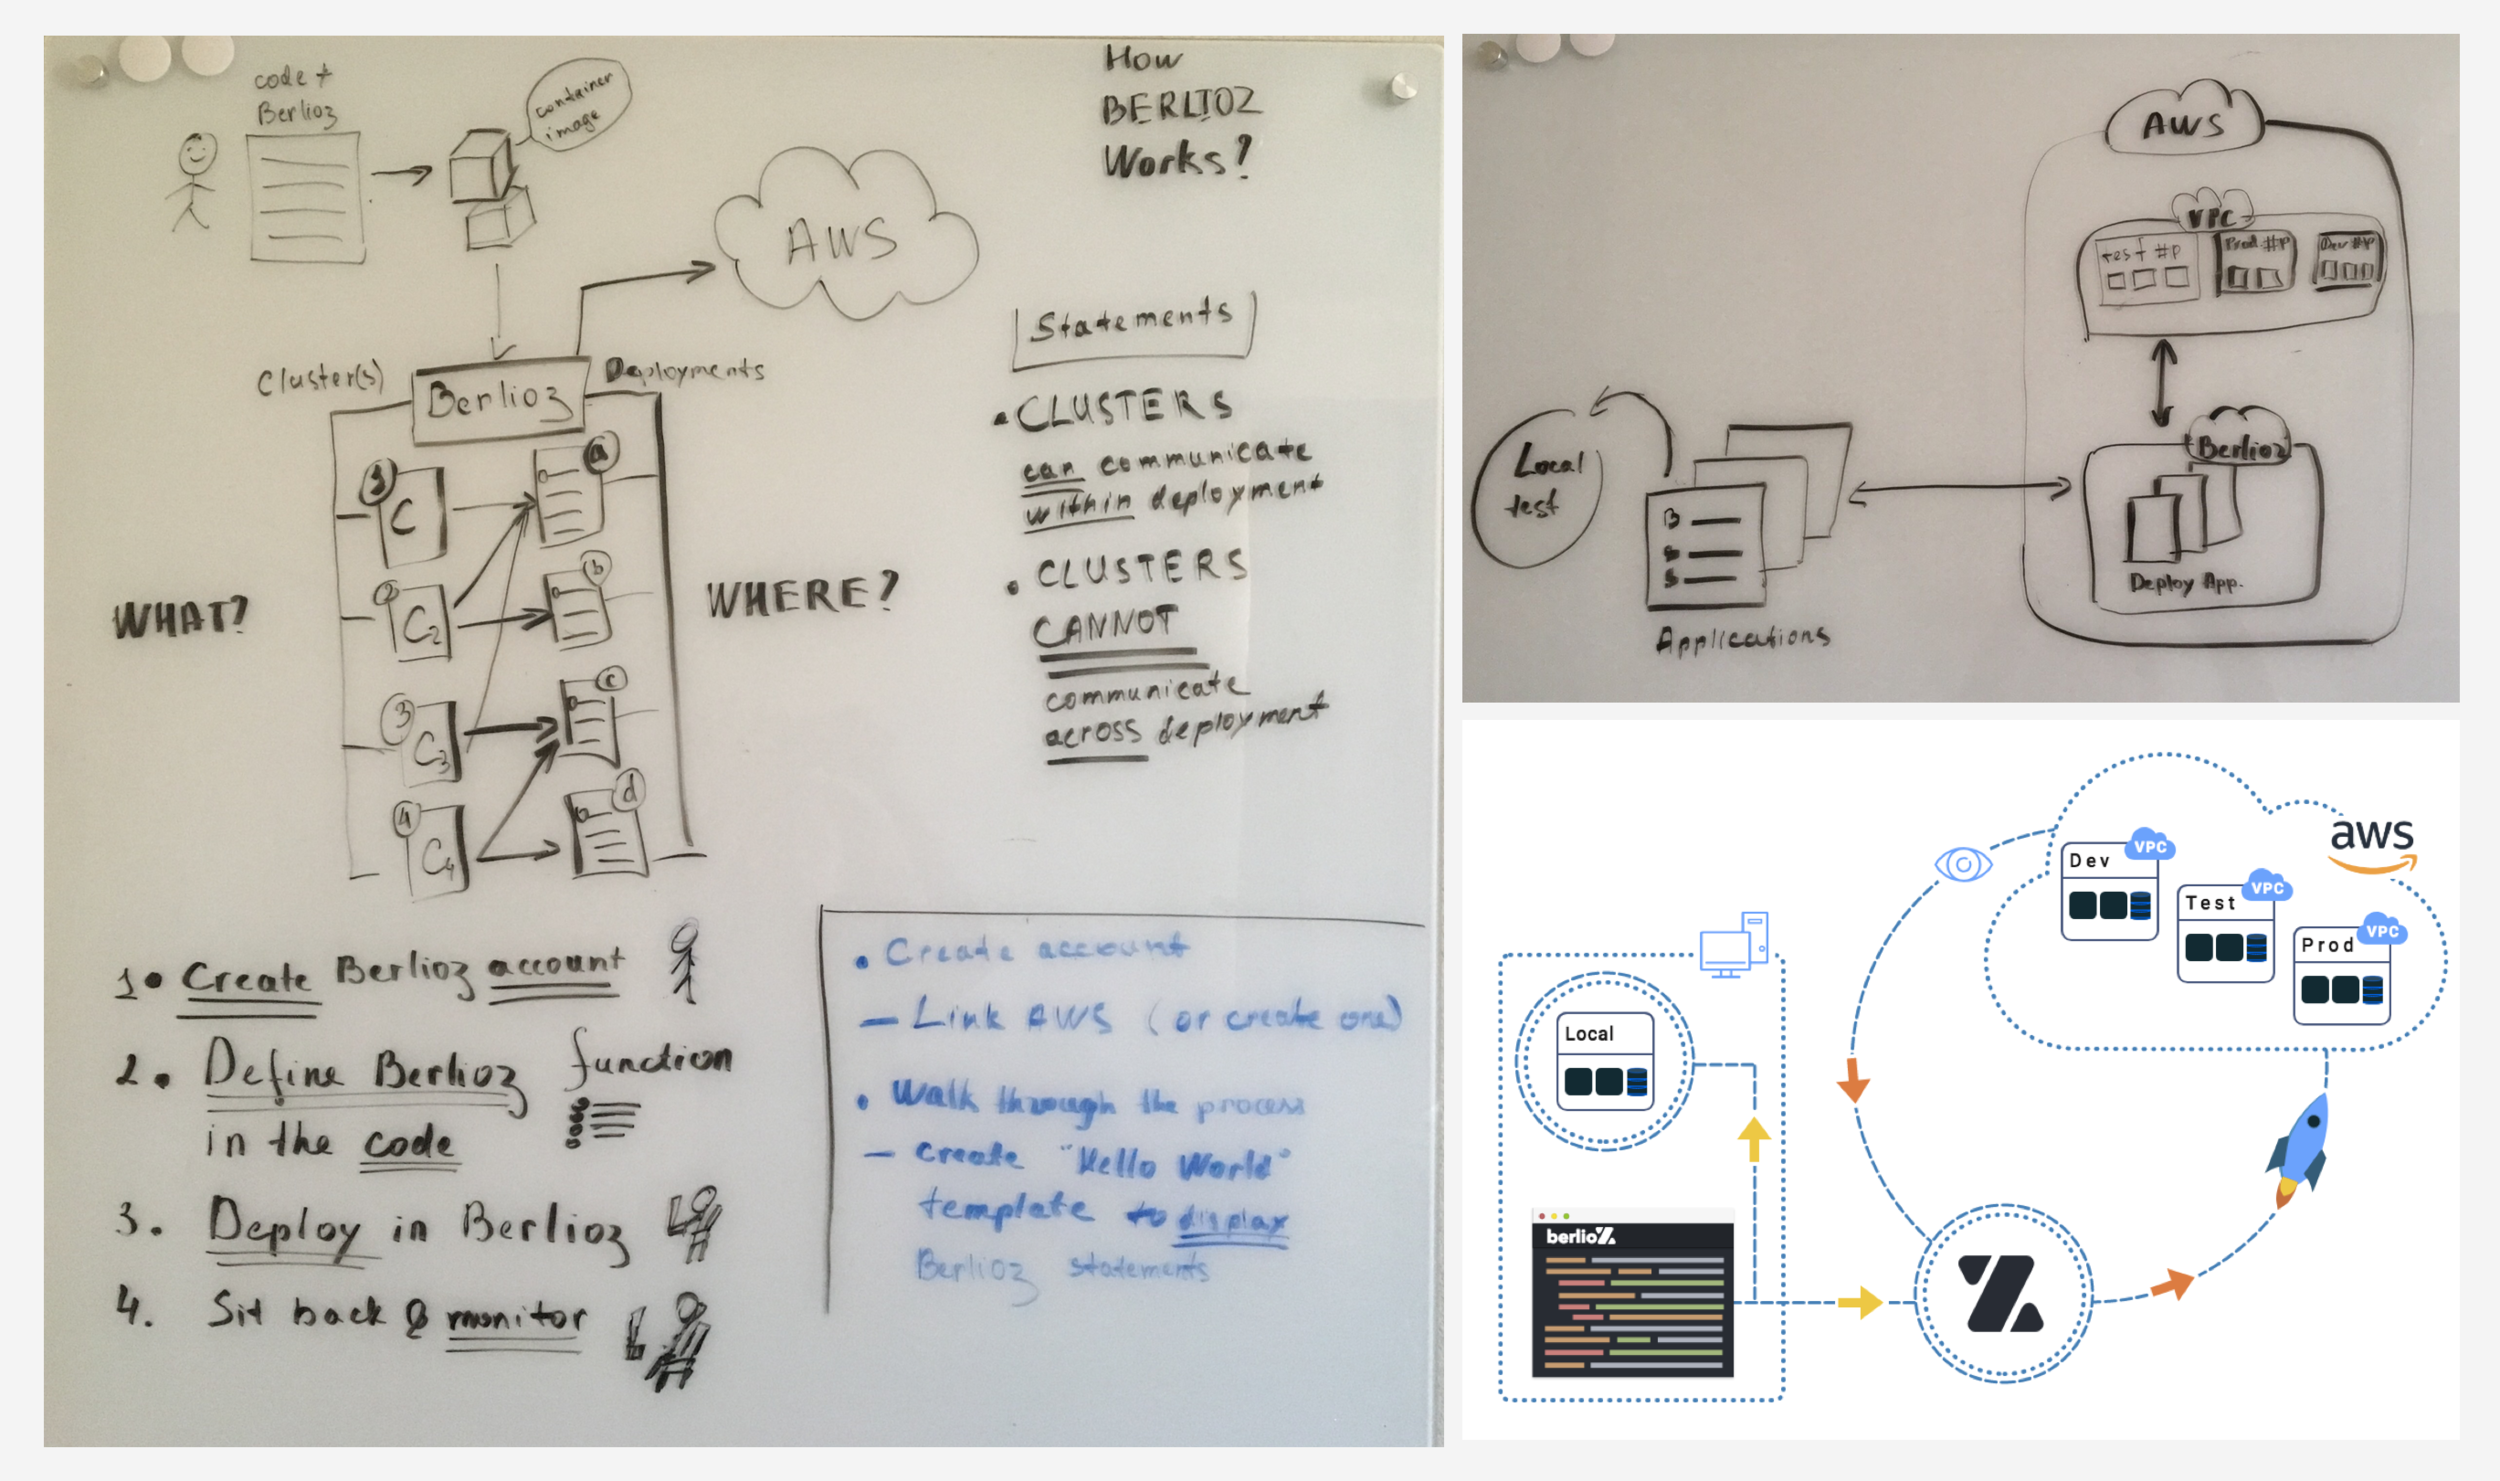 code +
Berlioz
container
image
How
BERLIOZ
Works?
AWS
Cluster(s)
Berlioz
Deployments
Statements
1
C
a
2
C2
b
3
C3
c
4
C4
d
WHAT?
WHERE?
• CLUSTERS
can communicate
within deployment
• CLUSTERS
CANNOT
communicate
across deployment
1. Create Berlioz account
2. Define Berlioz function
in the code
3. Deploy in Berlioz
4. Sit back & monitor
• Create account
– Link AWS (or create one)
• Walk through the process
– create "Hello World"
template to display
Berlioz statements
AWS
VPC
test #p
Prod #p
Dev #p
Local
test
B
B
Applications
Berlioz
Deploy App.
aws
Dev
VPC
Test
VPC
Prod
VPC
Local
berlioz